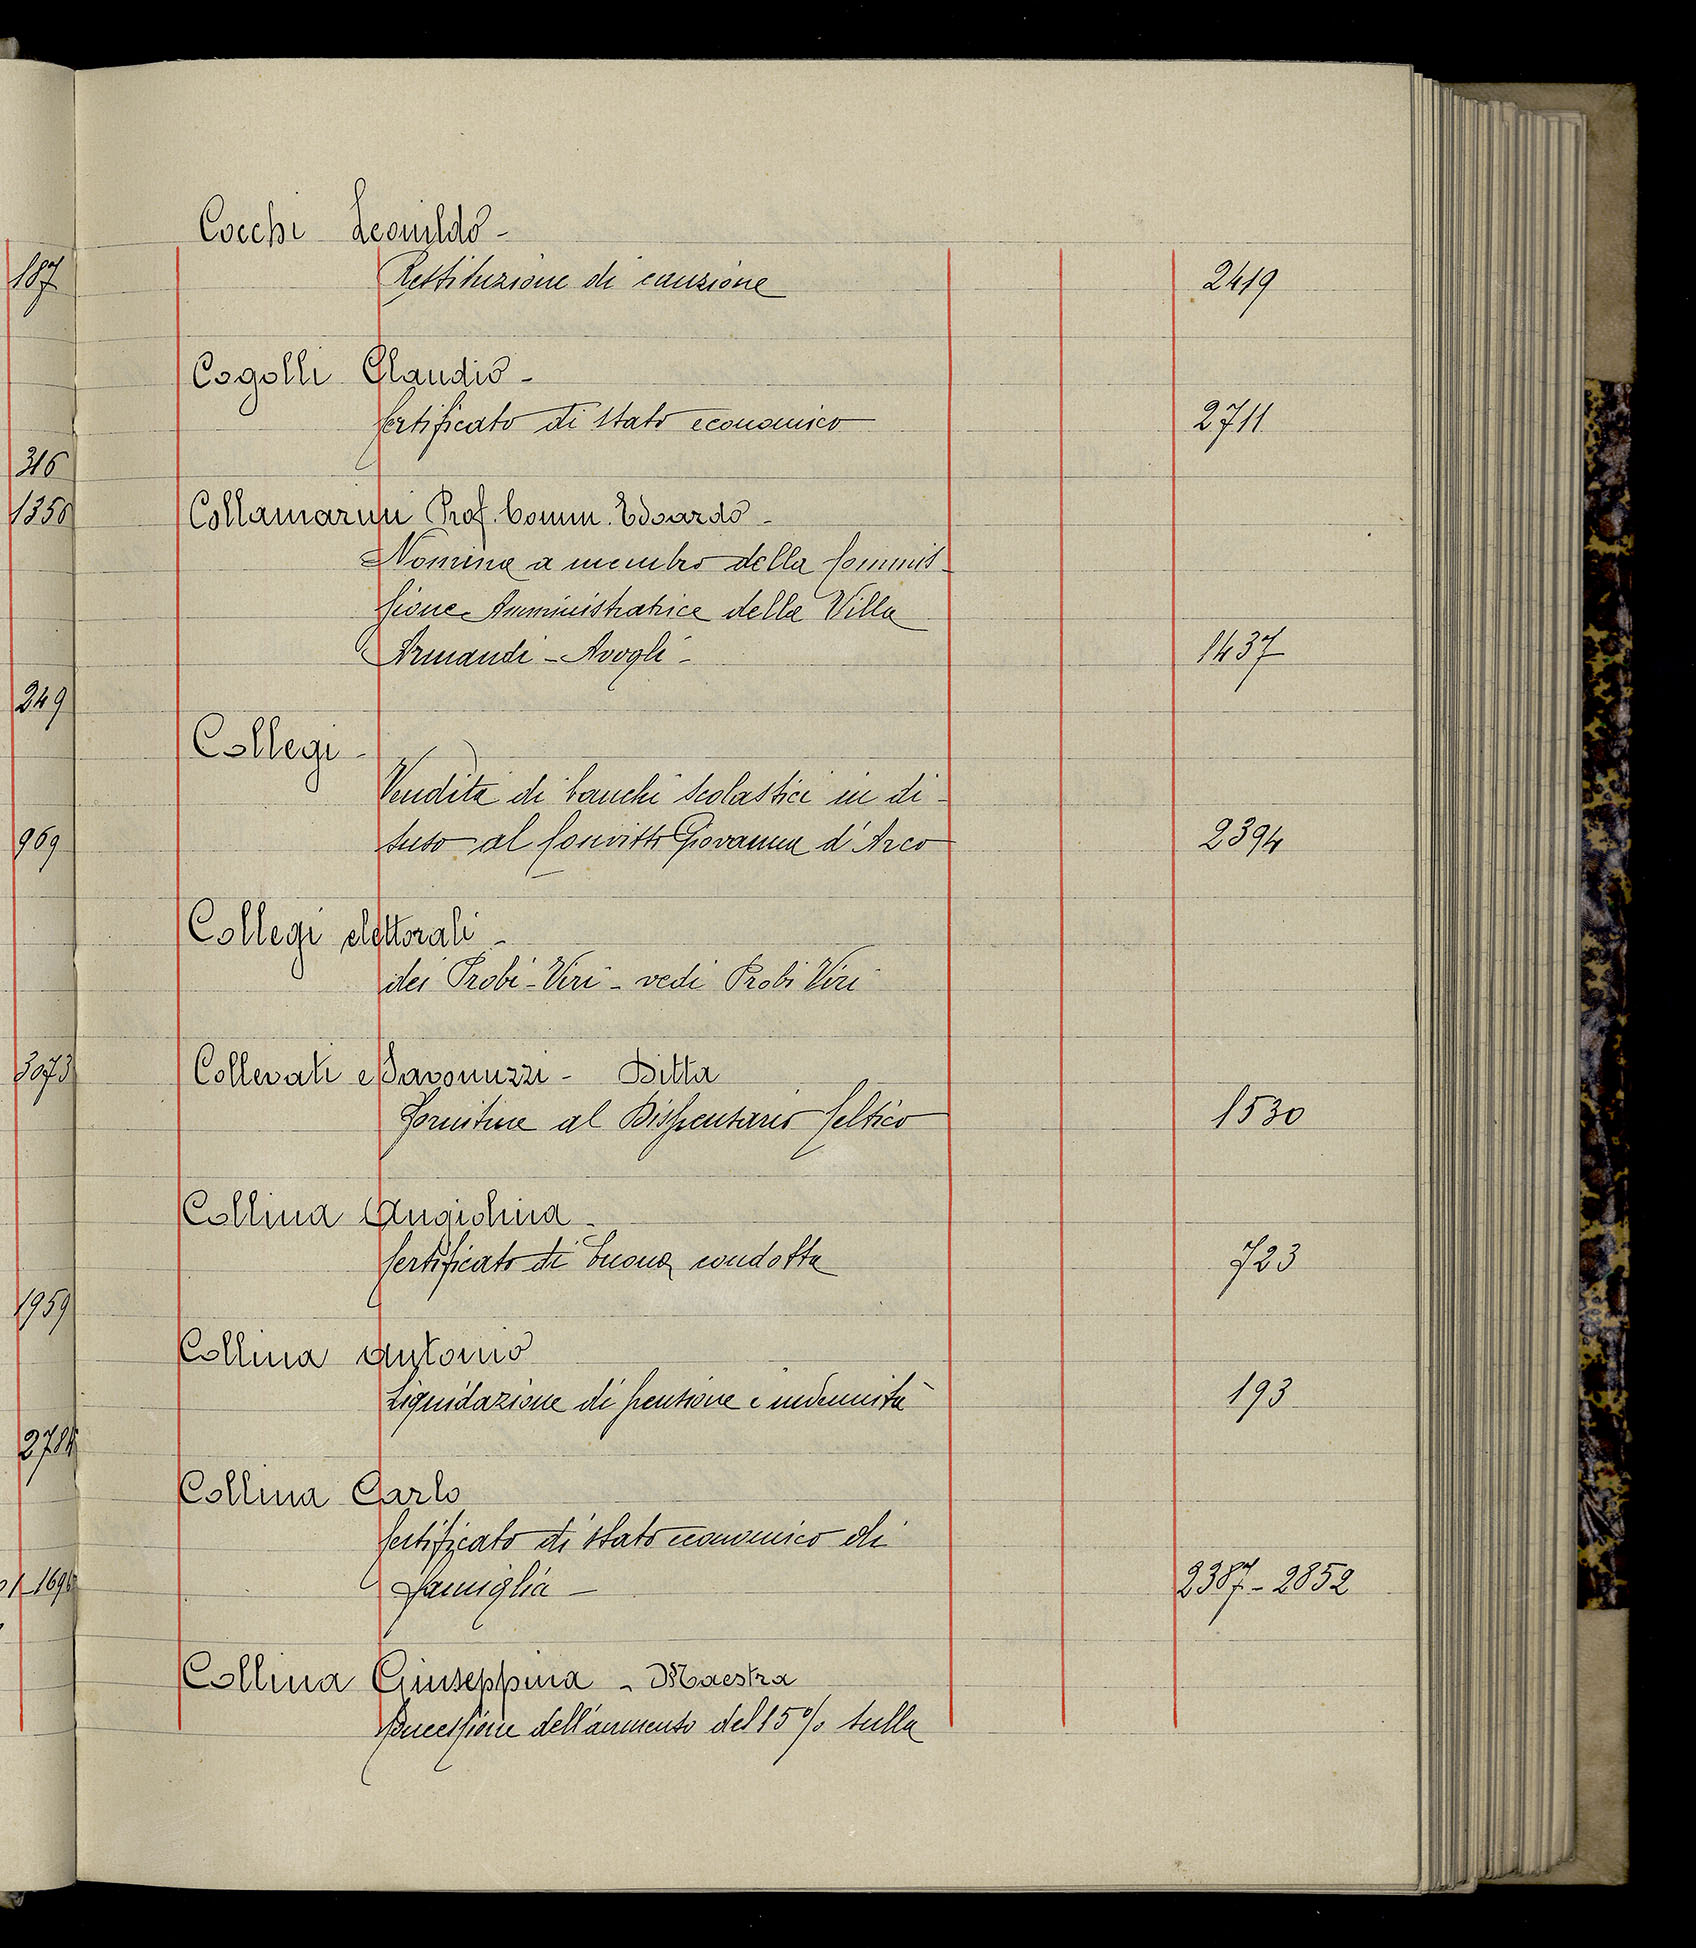 187
316
1356
249
969
3073
1959
1696
Cocchi Leonildo -
Restituzione di cauzione 2419
Cogolli Claudio -
Certificato di stato economico 2711
Collamarini Prof. Comm. Edoardo -
Nomina a membro della Commis-
sione Amministratrice della Villa
Armandi - Avogli - 1437
Collegi -
Vendita di banchi scolastici in di-
suso al Convitto Giovanna d'Arco 2394
Collegi elettorali -
dei Probi-Viri - vedi Probi Viri
Collevati e Savonuzzi - Ditta
Forniture al Dispensario Celtico 1530
Collina Angiolina -
Certificato di buona condotta 723
Collina Antonio
Liquidazione di pensione e indennità 193
Collina Carlo
Certificato di stato economico di
famiglia - 2387 - 2852
Collina Giuseppina - Maestra
Concessione dell'aumento del 15% sulla